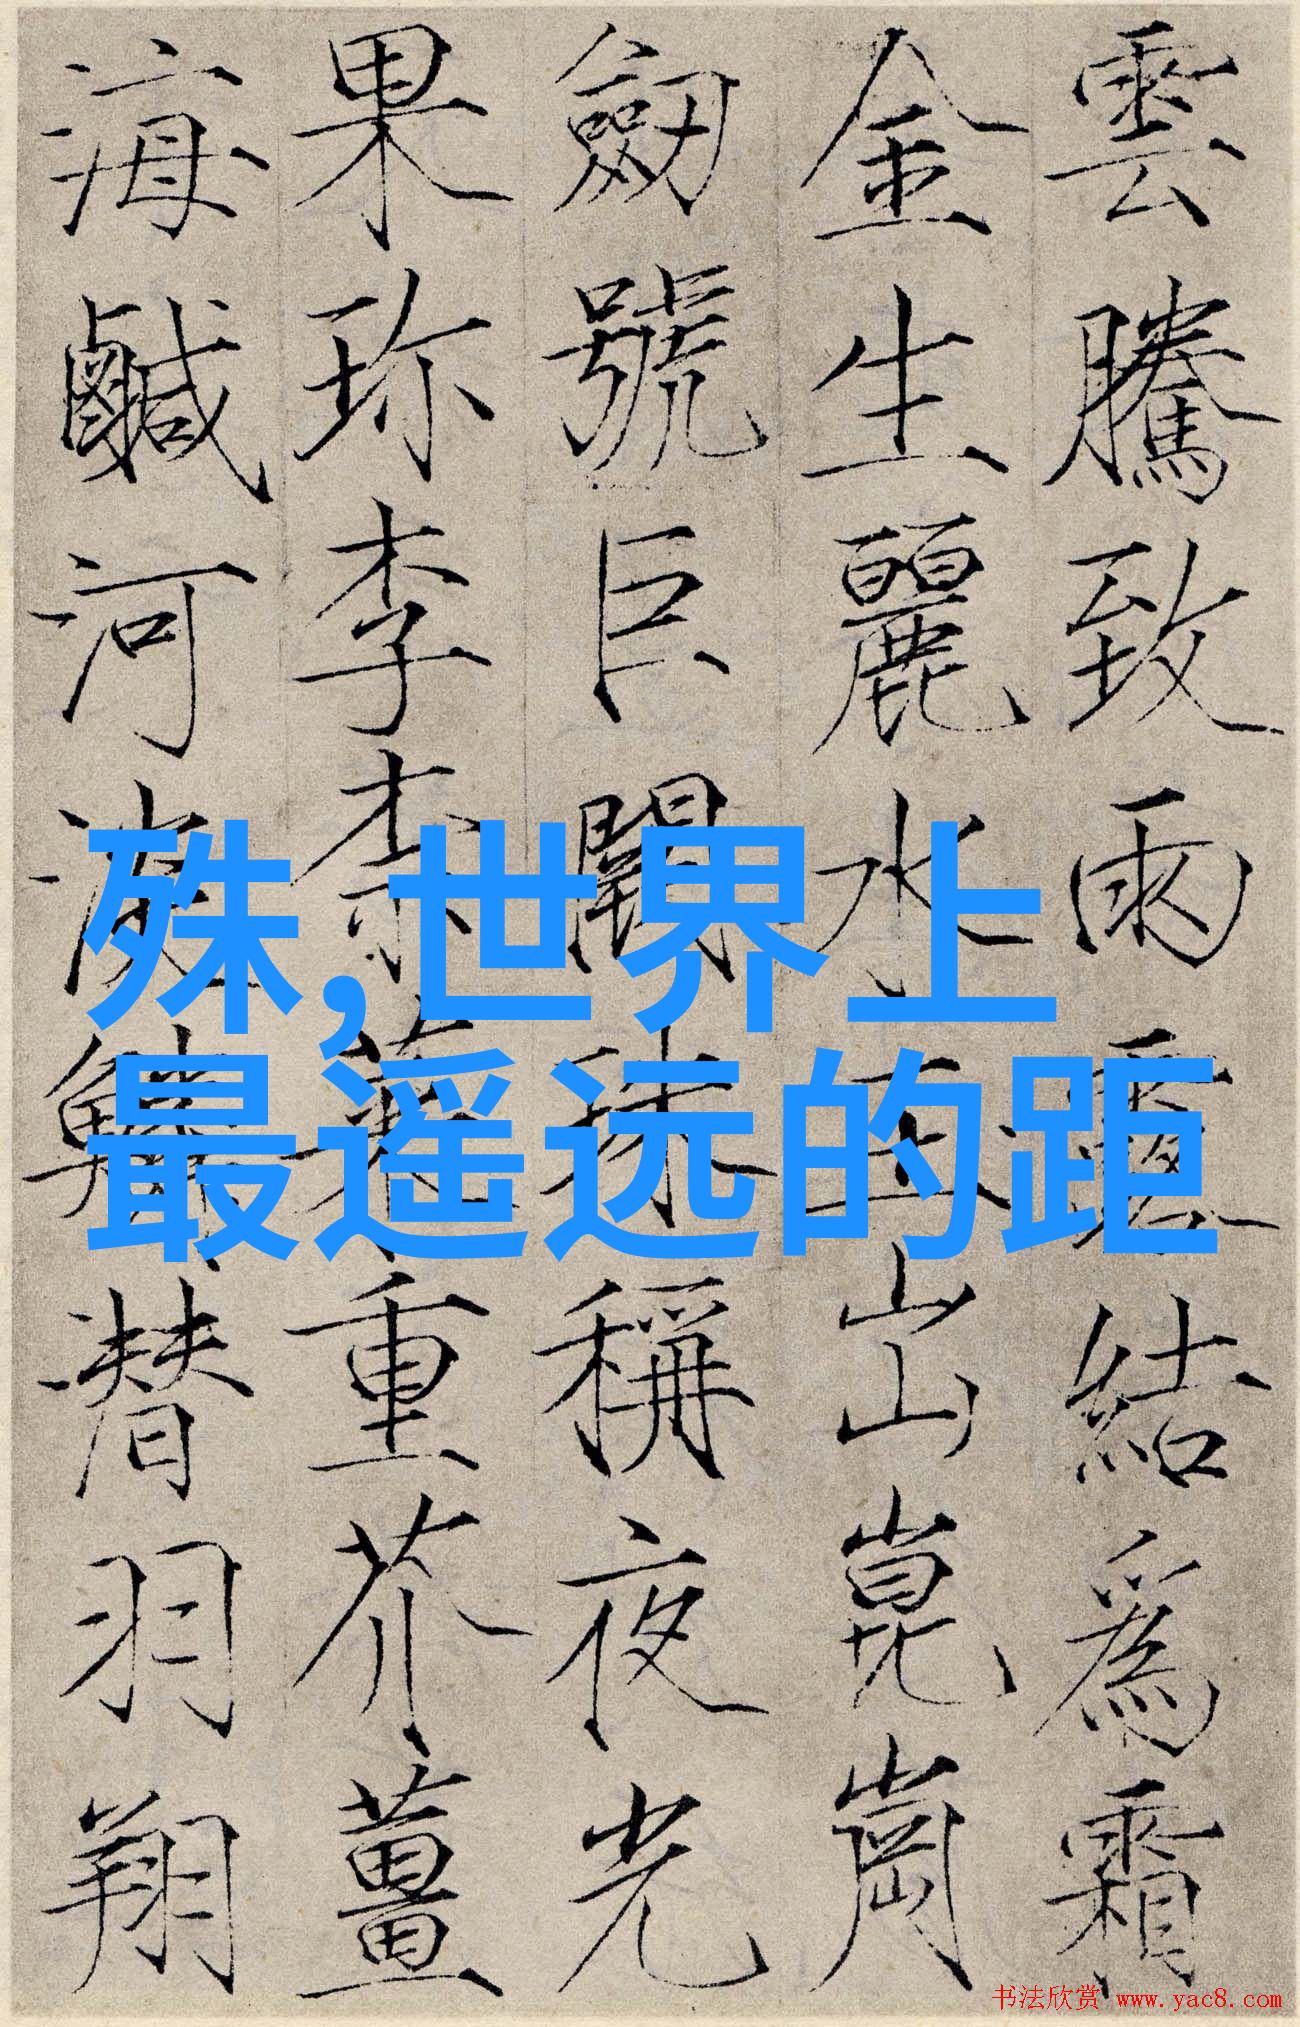 雲騰致雨露結爲霜
金生麗水玉出崑崗
劔號巨闕珠稱夜光
果珎李柰菜重芥薑
海鹹河淡鱗潜羽翔
殊,世界上
最遥远的距
书法欣赏 www.yac8.com